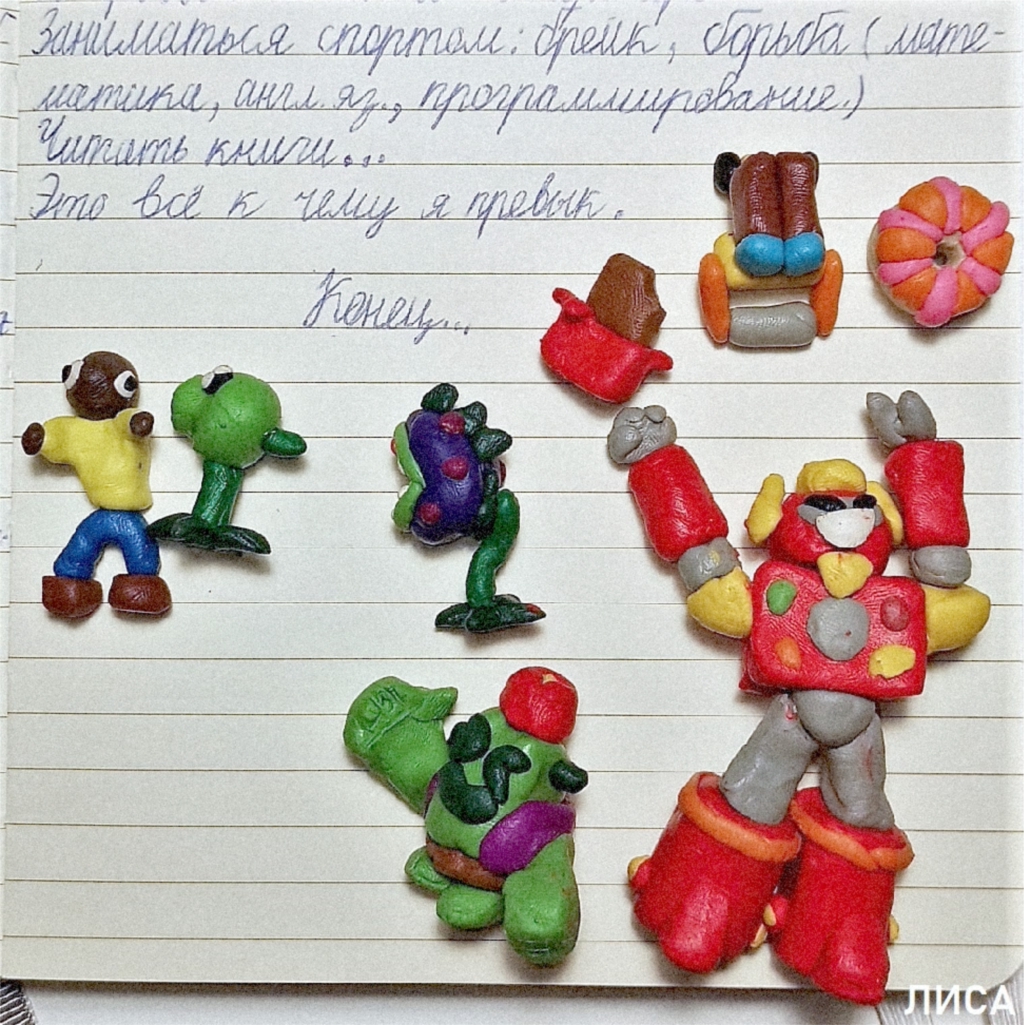 Заниматься спортом: брейк, борьба (мате-
матика, англ. яз., программирование.)
Читать книги...
Это всё к чему я превык.
Конец...
ЛИСА